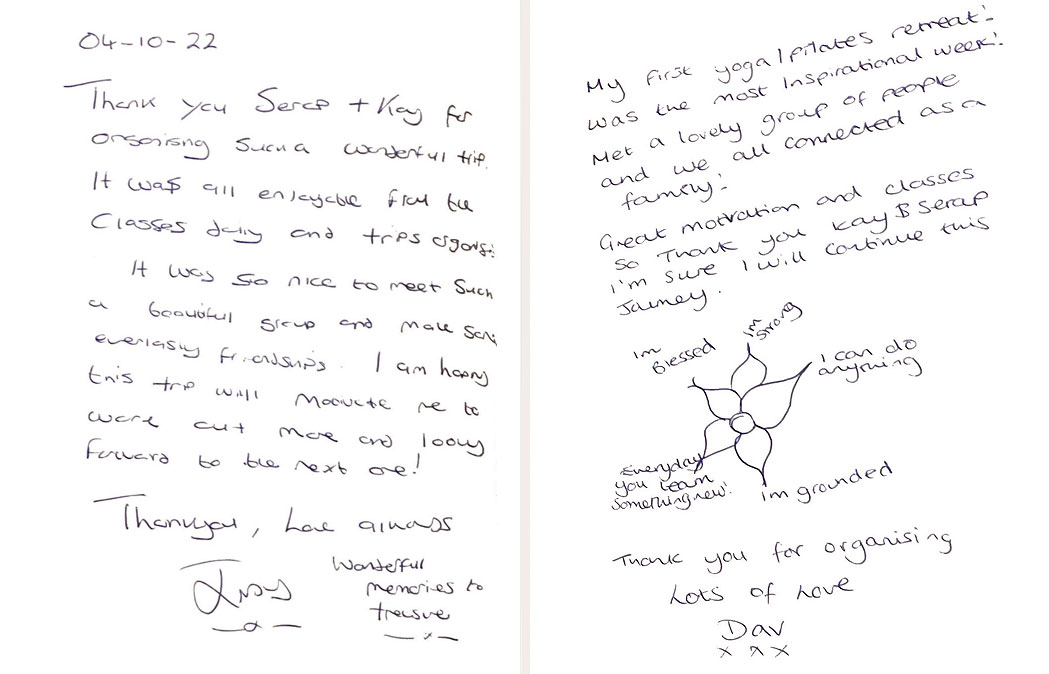 04-10-22
Thank you Serap + Kay for
organising such a wonderful trip.
It was all enjoyable from the
Classes daily and trips
It was so nice to meet such
a beautiful group and make some
everlasting friendships. I am happy
this trip will motivate me to
work out more and looking
forward to the next one!
Thankyou, Love always
Wonderful
memories to
treasure
My first yoga/pilates retreat!
was the most Inspirational week!
Met a lovely group of people
and we all connected as a
family!
Great motivation and classes
so Thank you Kay & Serap
I'm sure I will continue this
Journey.
Im
Blessed
im
strong
I can do
anything
Everyday
you learn
something new!
im grounded
Thank you for organising
Lots of Love
Dav
x x x